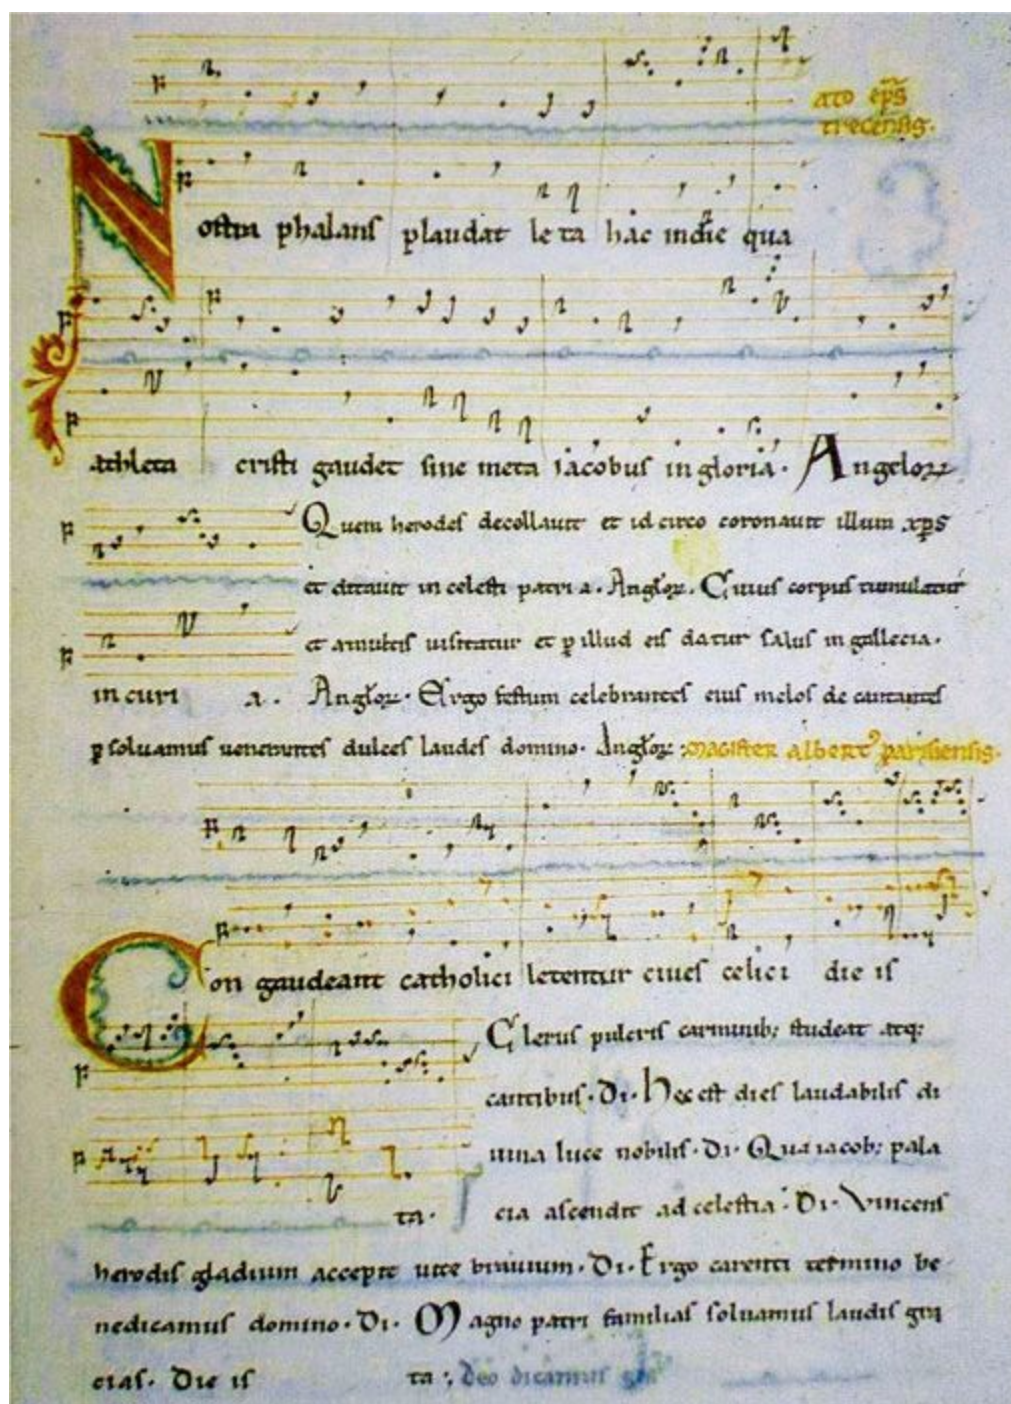 ato ep̅s
trecensis.
Nostra phalans plaudat leta hac in die qua
athleta cristi gaudet sine meta iacobus in gloria. Angeloꝝ
Quem herodes decollauit et id circo coronauit illum xp̅s
et ditauit in celesti patria. Angloꝝ. Cuius corpus tumulatur
et a multis uisitatur et ꝑ illud eis datur salus in gallecia.
in curi a. Angloꝝ. Ergo festum celebrantes eius melos decantantes
ꝑsoluamus uenerantes dulces laudes domino. Angloꝝ. magister albertꝰ parisiensis.
Congaudeant catholici letentur ciues celici die is
Clerus pulcris carminib; studeat atq;
cantibus. Di. Hec est dies laudabilis di
uina luce nobilis. Di. Qua iacob; pala
ta. cia ascendit ad celestia. Di. Vincens
herodis gladium accepit uite brauium. Di. Ergo carenti termino be
nedicamus domino. Di. Magno patri familias soluamus laudis gra
cias. Die is ta. deo dicamus